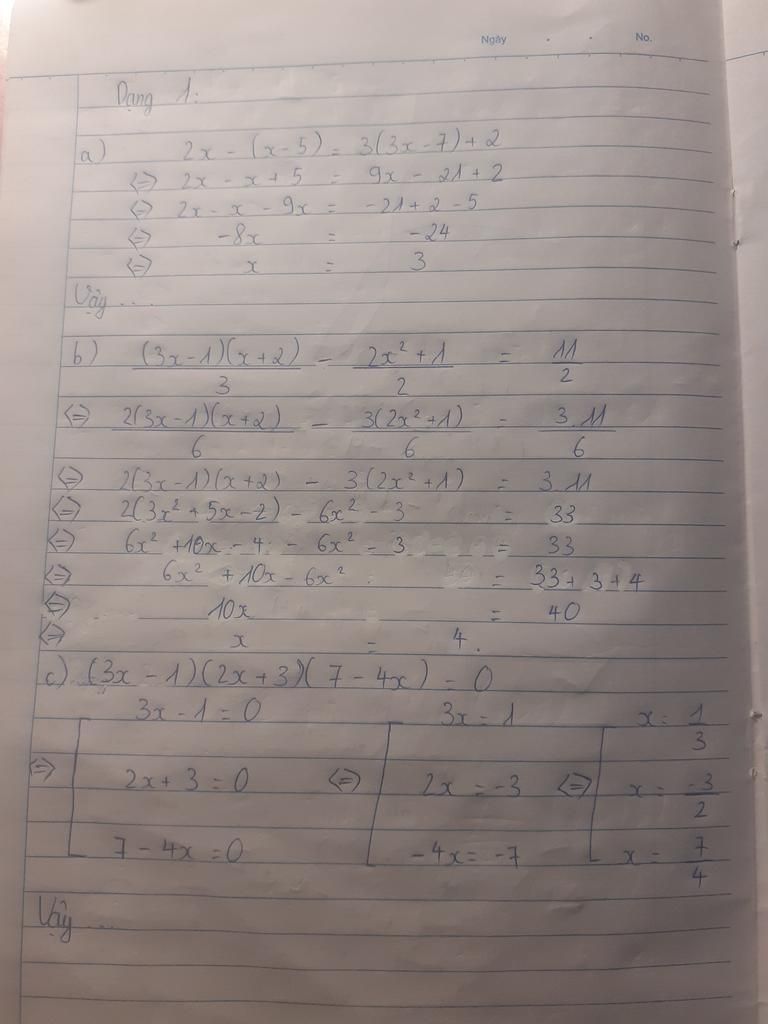 Ngày . . No.
Dạng 1:
a) 2x - (x-5) = 3(3x-7)+2
<=> 2x - x + 5 = 9x - 21 + 2
<=> 2x - x - 9x = -21 + 2 - 5
<=> -8x = -24
<=> x = 3
Vậy ....
b) (3x-1)(x+2)/3 - 2x² + 1/2 = 11/2
<=> 2(3x-1)(x+2)/6 - 3(2x²+1)/6 = 3.11/6
<=> 2(3x-1)(x+2) - 3(2x²+1) = 3.11
<=> 2(3x² + 5x - 2) - 6x² - 3 = 33
<=> 6x² + 10x - 4 - 6x² - 3 = 33
<=> 6x² + 10x - 6x² = 33 + 3 + 4
<=> 10x = 40
<=> x = 4.
c) (3x - 1)(2x + 3)(7 - 4x) = 0
3x - 1 = 0 3x = 1 x = 1/3
<=> 2x + 3 = 0 <=> 2x = -3 <=> x = -3/2
7 - 4x = 0 -4x = -7 x = 7/4
Vậy ...